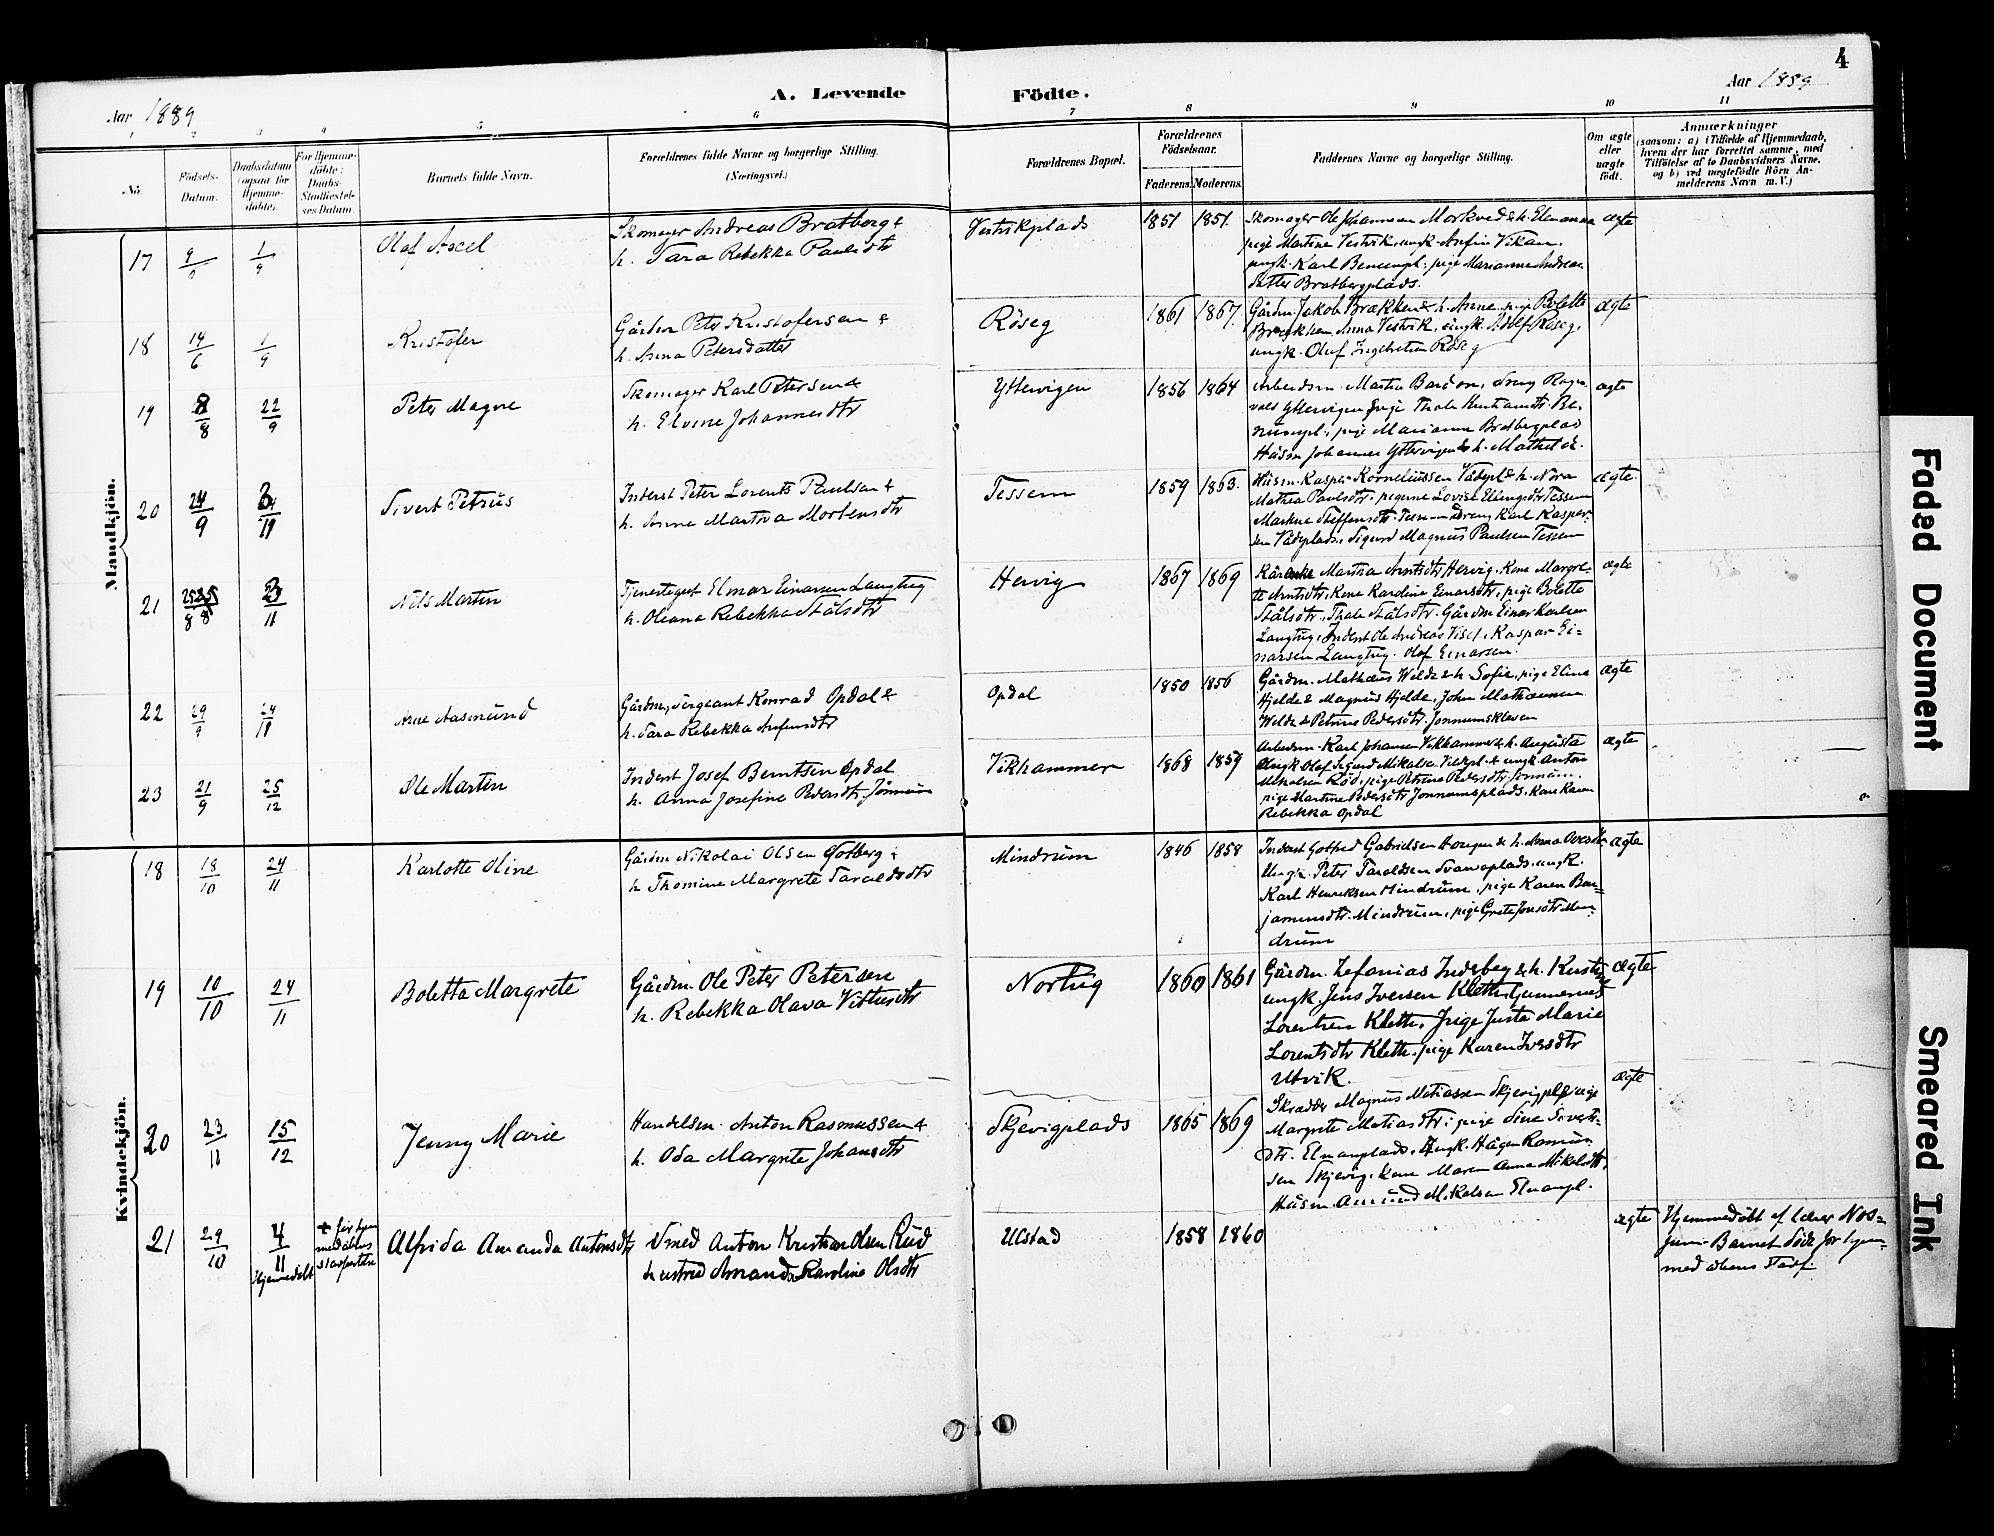 4
Aar 1889
A. Levende Födte.
Aar 1889
1 2 3 4 5 6 7 8 9 10 11
No.
Födsels-
Datum.
Daabsdatum
(ogsaa for
Hjemme-
döbte).
For Hjemme-
döbte:
Daabs-
Stadfæstel-
ses Datum.
Barnets fulde Navn.
Forældrenes fulde Navne og borgerlige Stilling.
(Næringsvei.)
Forældrenes Bopæl.
Forældrenes
Födselsaar.
Faderens. Moderens.
Faddernes Navne og borgerlige Stilling.
Om ægte
eller
uægte
födt.
Anmærkninger
(saasom: a) i Tilfælde af Hjemmedaab,
hvem der har forrettet samme, med
Tilföielse af to Daabsvidners Navne,
og b) ved uægtefödte Börn An-
melderens Navn m. V.)
Mandkjön.
17
1/9
Olaf Axel
Skomager Andreas Bratberg &
h. Sara Rebekka Paulsdtr
Vestvikplads
1851 1851.
Skomager Ole Johannesen Morkved & h. Elenanna
pige Martine Vestvik, ungk. Arfin Vikan,
ungk. Karl Benumpl., pige Marianne Andreas
datter Bratbergplads.
ægte
18
14/6
1/9
Kristofer
Gårdm Peter Kristofersen &
h. Anna Petersdatter
Röseg
1861 1867.
Gårdm. Jakob Brækken & h. Anne, pige Bolette
Brækken, Anna Vestvik, ungk. Adolf Röseg,
ungk. Oluf Ingebretsen Röseg
ægte
19
8/8
22/9
Peter Magne
Skomager Karl Petersen &
h. Elvine Johannesdtr
Yttervigen
1856 1864
Arbeidsm. Martin Bardon, Dreng Ragn-
vald Yttervigen, pige Thale Kristiansdtr. Be-
numpl., pige Marianne Bratbergplads
Husm Johannes Yttervigen & h. Mathilde.
ægte
20
24/9
24/11
Sivert Petrus
Inderst Peter Lorents Paulsen &
h. Anne Martha Mortensdtr
Tessem
1859 1863.
Husm. Kasper Korneliussen Vådepl & h. Nora
Mathea Paulsdtr, pigerne Lovise Ellingsdtr Tessem
Martine Steffensdtr. Tessem Dreng Karl Kasper-
sen Vådeplads, Sigurd Magnus Paulsen Tessem
ægte.
21
25/8
11
Nils Martin
Tjenestegut Elmar Einarsen Langtug
h. Oleana Rebekka Stålsdtr
Hervig
1867 1869
Kårenke Martha Arntsdtr Hervig. Kone Margre-
te Arntsdtr, Kone Karoline Einarsdtr, pige Bolette
Stålsdtr, Thale Stålsdtr. Gårdm Einar Karlsen
Langtug, Inderst Ole Andreas Visel, Kaspar Ei-
narsen Langtug. Olaf Einarsen.
ægte
22
29/9
24/11
Arne Aasmund
Gårdm, Sergeant Konrad Opdal &
h. Sara Rebekka Arfinsdtr
Opdal
1850 1856
Gårdm. Mathæus Welde & h. Sofie, pige Eline
Hjelde & Magnus Hjelde, Johan Mathæussen
Welde & Petrine Pedersdtr. Jonnumskleven
ægte
23
21/9
25/12
Ole Martin
Inderst Josef Berntsen Opdal
h. Anna Josefine Pedersdtr. Jönnum
Vikhammer
1868 1859
Arbeidsm. Karl Johansen Vikhammer & h. Augusta
ungk. Olaf Sigurd Mikelsen Vikepl. & ungk Anton
Mikalsen Röd, pige Petrine Pedersdtr, Jönnum,
pige Martine Pedersdtr Jonnumsplads, Kone Karen
Rebekka Opdal
ægte
Kvindekjön.
18
18/10
24/11
Karlotte Oline
Gårdm Nikolai Olsen Gotberg &
h Thomine Margrete Taraldsdtr
Mindrum
1846 1858
Inderst Gotfred Gabrielsen Haugen & h. Anna Oversdtr
Ungk. Peter Taraldsen Svanoplads, ungk.
Karl Henriksen Mindrum, pige Karen Ben-
jaminsdtr. Mindrum, pige Grete Jonsdtr Min-
drum
ægte
19
10/10
24/11
Boletta Margrete
Gårdm. Ole Peter Petersen
h. Rebekka Olava Vittusdtr
Nortug
1860 1861
Gårdm. Zefanias Indsbey & h. Kirstine
ungk. Jens Iversen Kleth, Gunnerius
Lorentsen Kleth, Pige Justa Marie
Lorentsdtr Kleth, pige Karen Iversdtr
Utvik.
ægte
20
23/11
15/12
Jenny Marie
Handelsm. Anton Rasmussen &
h. Oda Margrete Johansdtr
Skjevigplads
1865 1869
Skrædder Magnus Matiassen Skjevigpl, pige
Margrete Matiasdtr, pige Sine Siverts-
dtr. Elnanplads, Ungk. Hågen Rasmus-
sen Skjevig, Kone Maren Anna Mikalsdtr,
Husm. Amund Mikalsen Elnanpl.
ægte
21
29/10
4/11
Hjemmedøbt
+ før hjem
medåbens
stadfæstelse
Alfrida Amanda Antonsdtr
Smed Anton Kristian Olsen Rud
hustru Amanda Karoline Olsdtr
Ulstad
1858 1860
ægte
Hjemmedøbt af Lærer Nos-
jum. Barnet døde før hjem-
medåbens Stadf.
Faded Document
Smeared Ink